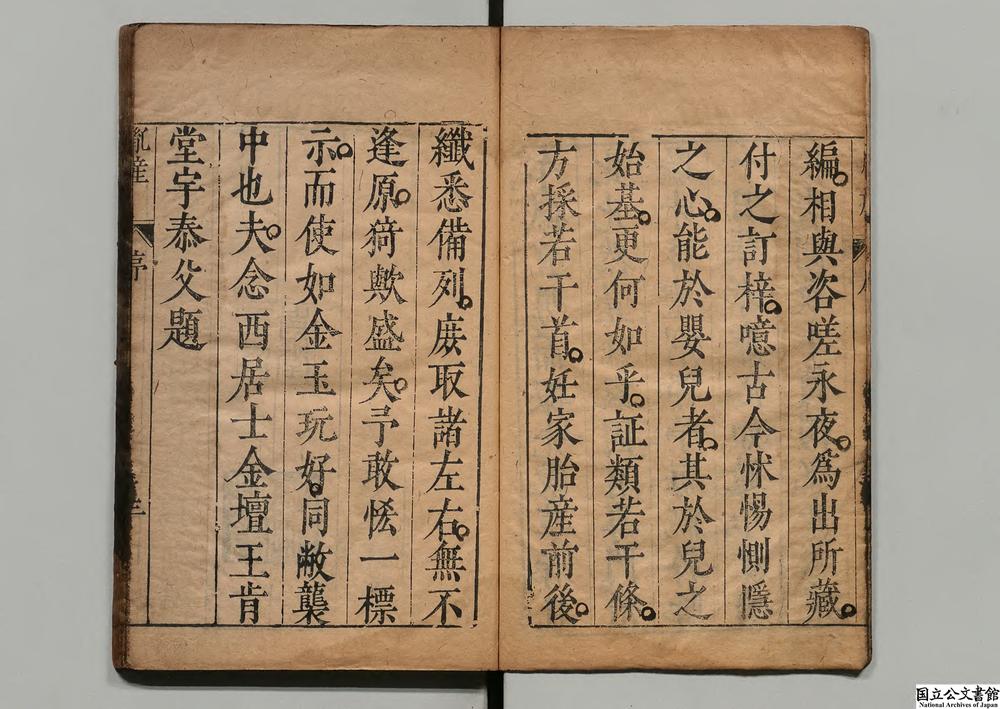 編。相與咨嗟永夜。為出所藏。
付之訂梓。噫古今怵惕惻隱
之心。能於嬰兒者。其於兒之
始基。更何如乎。証類若干條。
方採若干首。妊家胎産前後。
纖悉備列。庻取諸左右。無不
逢原。猗歟盛矣。予敢恡一標
示。而使如金玉玩好。同敝襲
中也。夫。念西居士金壇王肯
堂宇泰父題
胤産
序
国立公文書館
National Archives of Japan